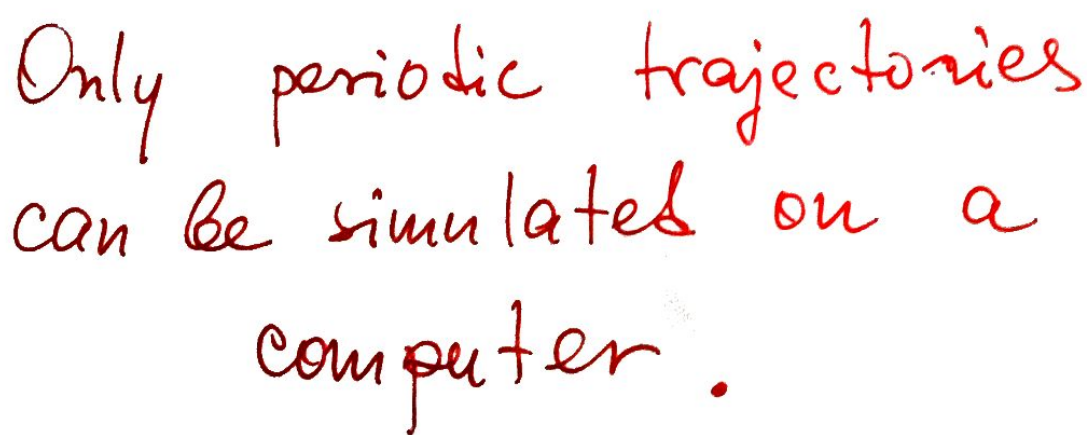 Only periodic trajectories
can be simulated on a
computer.